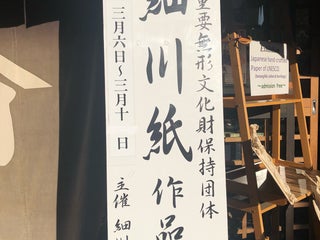 重要無形文化財保持団体
細川紙作品
三月六日～三月十 日
主催 細川
Japanese hand crafted
Paper of UNESCO.
～admission free～